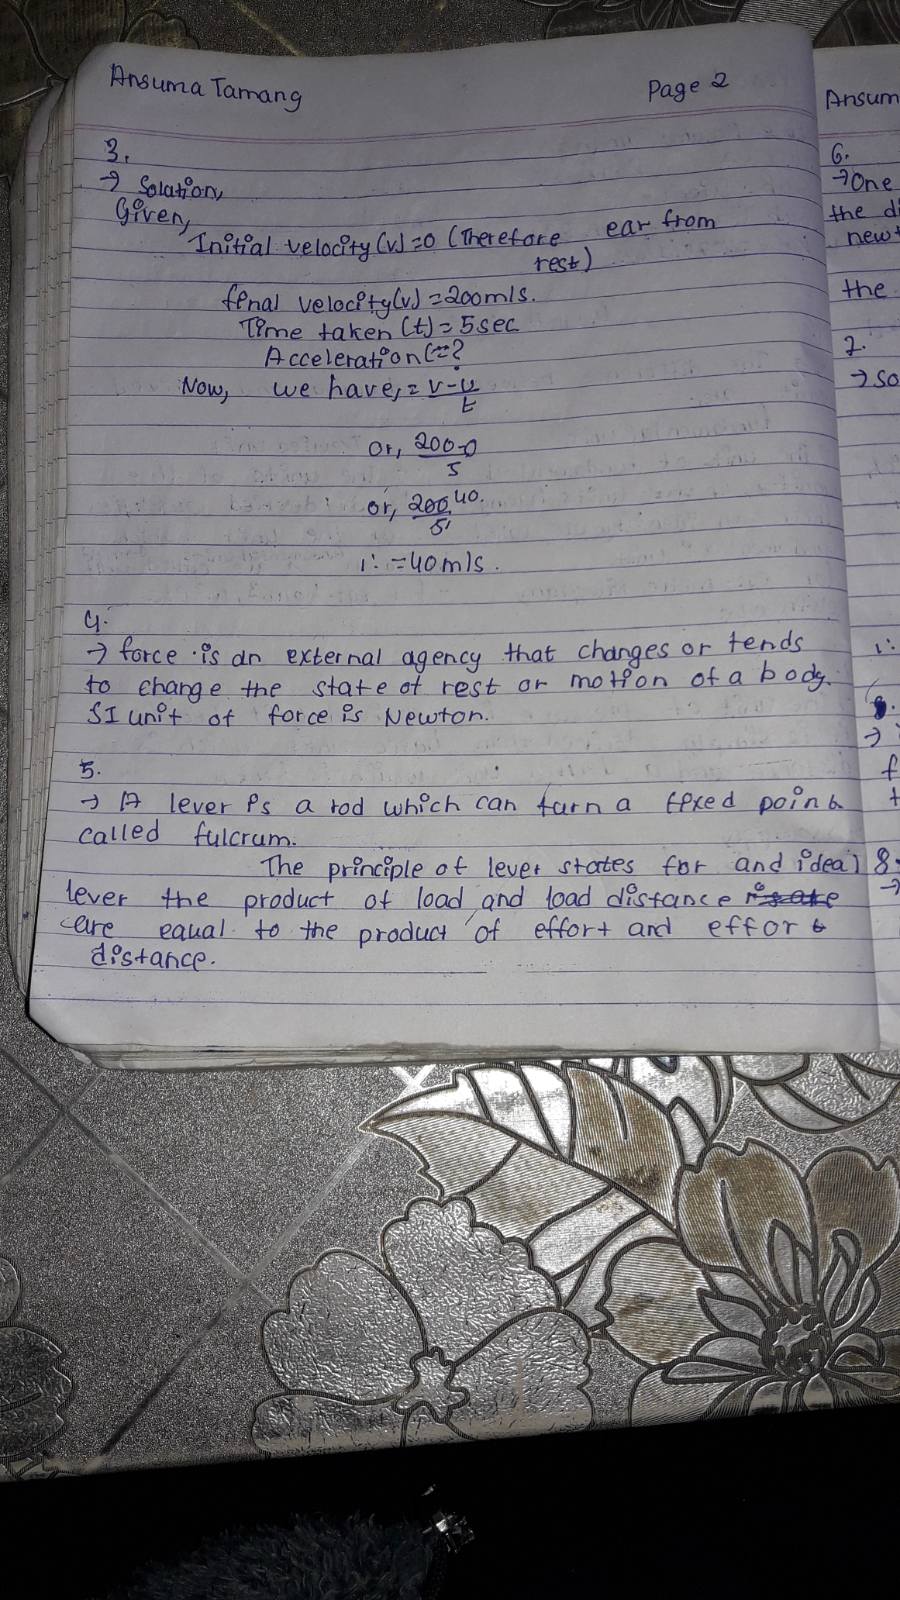 Ansuma Tamang Page 2
3.
→ Solation,
Given,
Initial velocity (v) = 0 (Therefore ear from
rest)
fenal velocity(v) = 200m/s.
Time taken (t) = 5sec
Acceleration (=?
Now, we have, = v-u
t
or, 200-0
5
or, 200 40.
5 1
∴ = 40m/s.
4.
→ force is an external agency that changes or tends
to change the state of rest or motion of a body.
SI unit of force is Newton.
5.
→ A lever is a rod which can turn a fixed point
called fulcrum.
The principle of lever states for and ideal
lever the product of load and load distance
are equal to the product of effort and effort
distance.
Ansum
6.
→ One
the di
newt
the
7.
→ so
∴
8.
→
f
t
8.
→